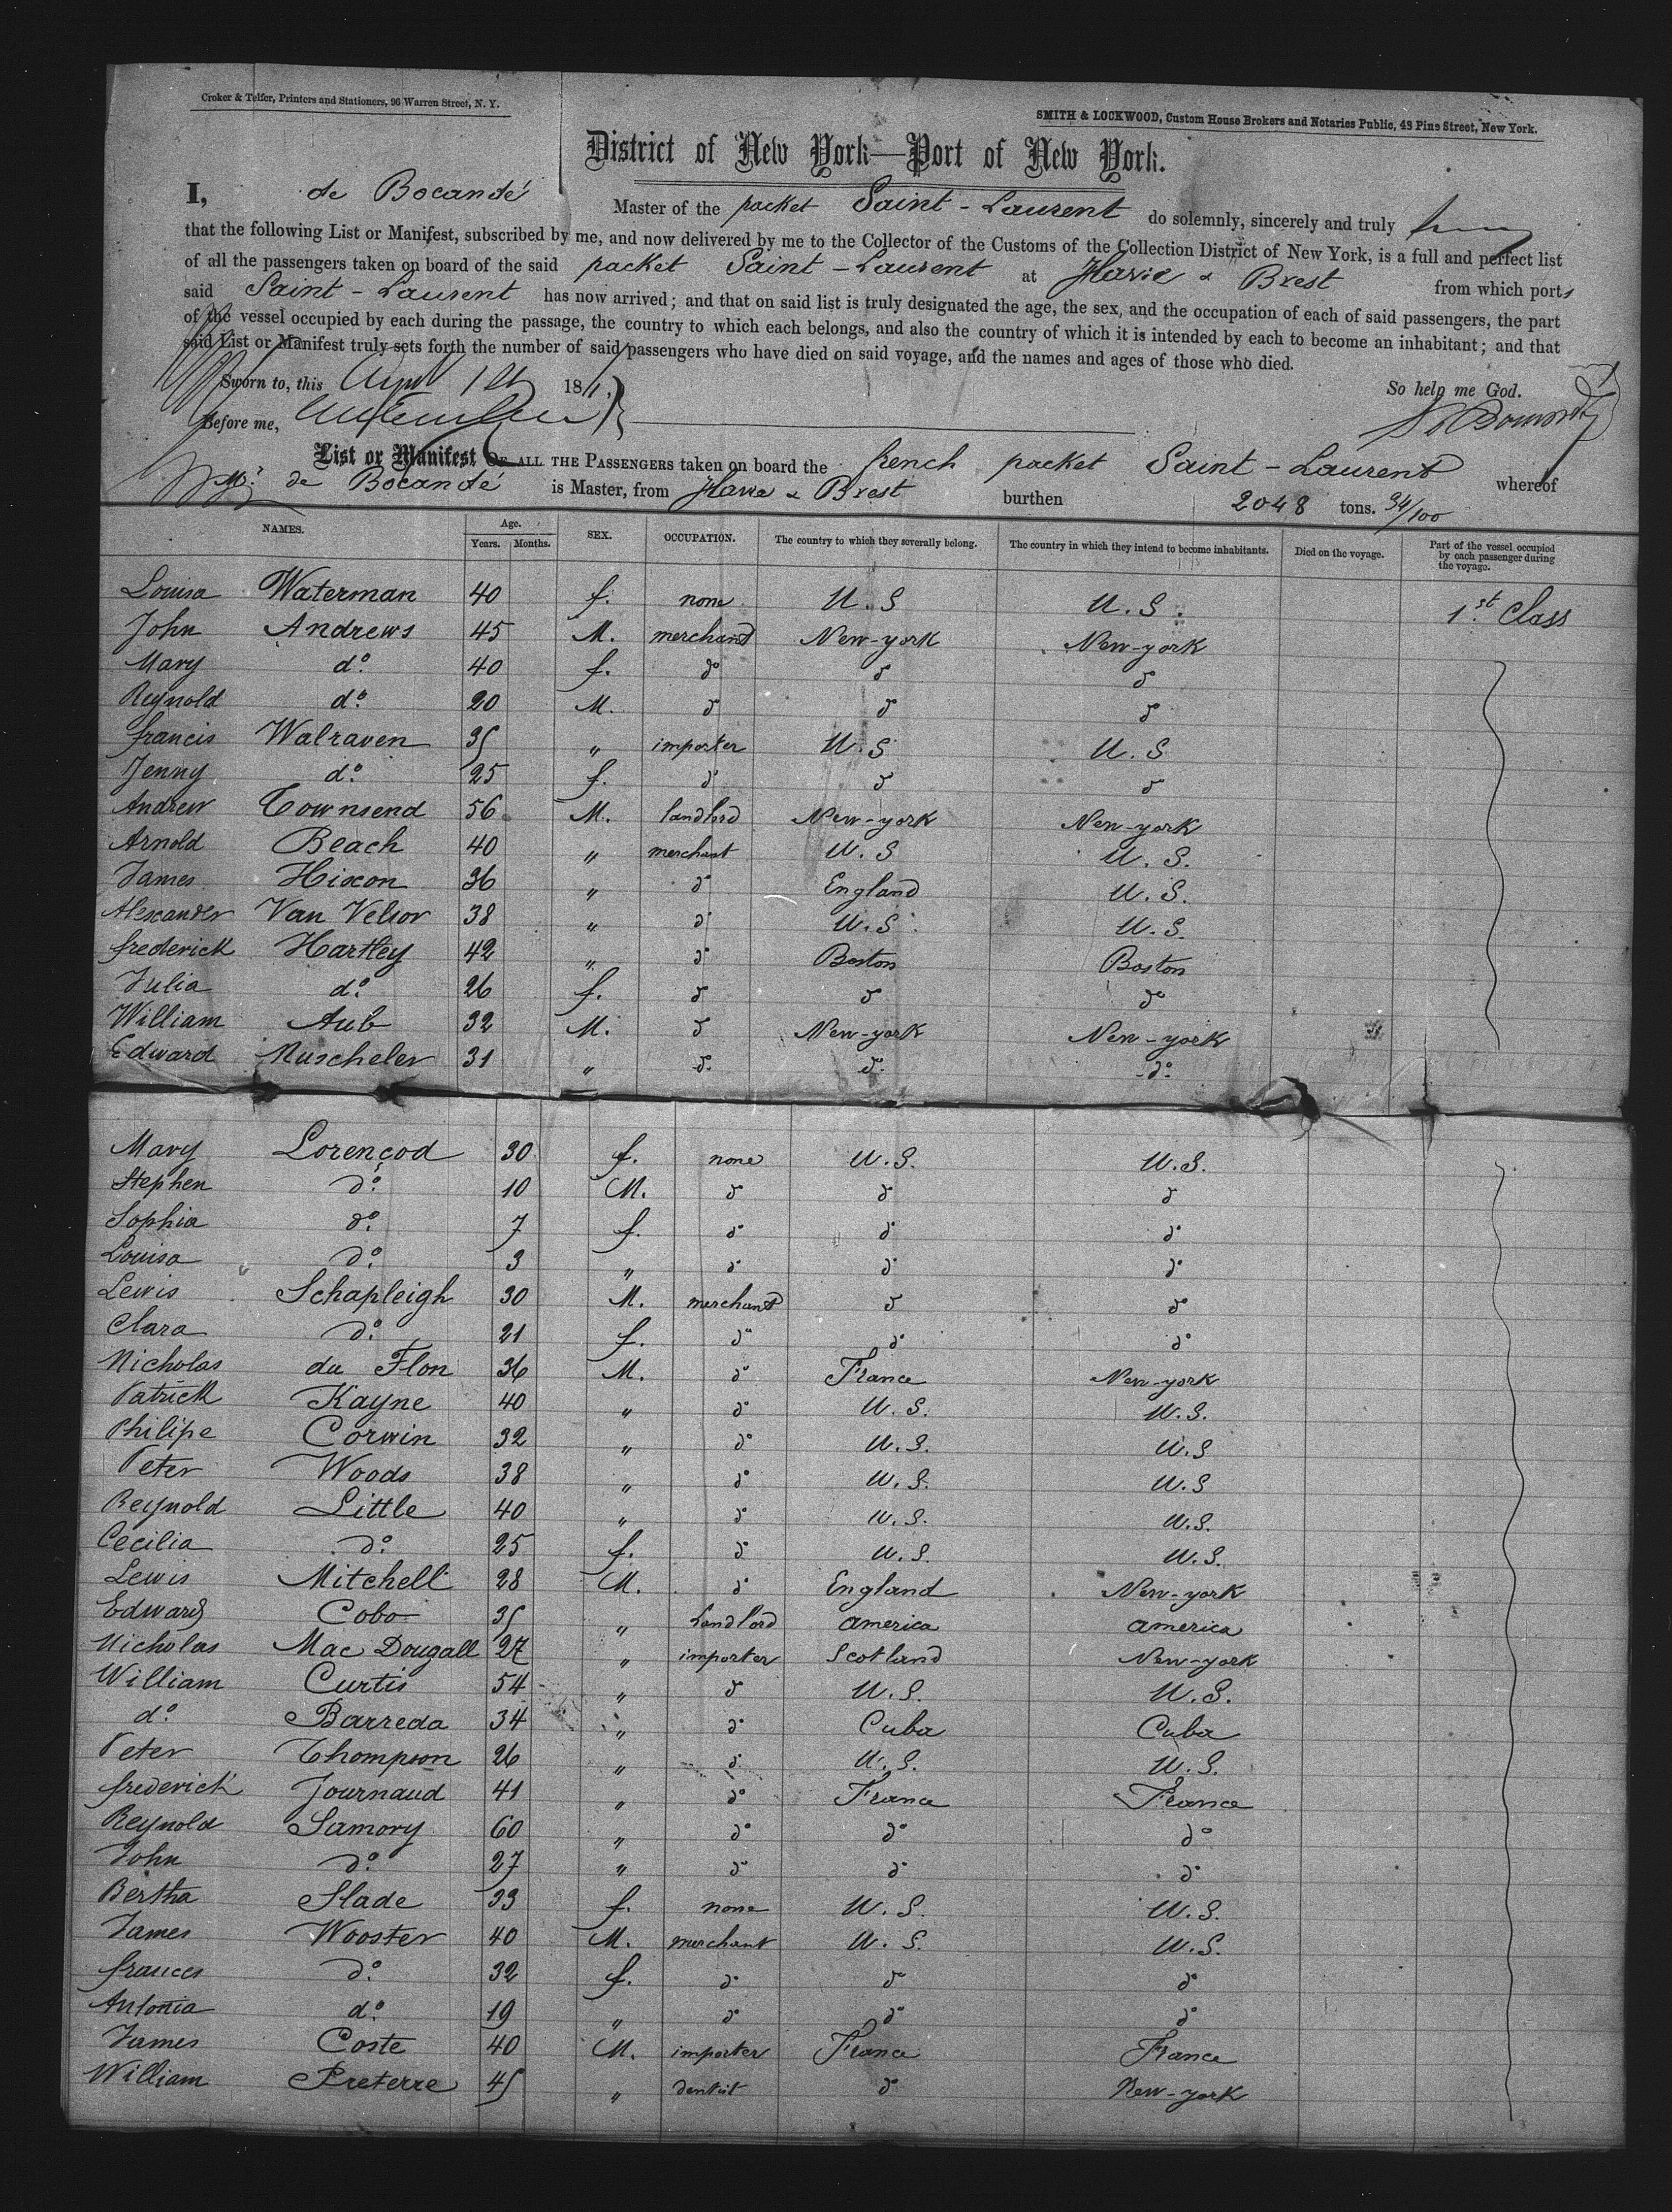 Croker & Telfer, Printers and Stationers, 96 Warren Street, N. Y.
SMITH & LOCKWOOD, Custom House Brokers and Notaries Public, 48 Pine Street, New York.
District of New York—Port of New York.
I, de Bocandé Master of the packet Saint-Laurent do solemnly, sincerely and truly
that the following List or Manifest, subscribed by me, and now delivered by me to the Collector of the Customs of the Collection District of New York, is a full and perfect list
of all the passengers taken on board of the said packet Saint-Laurent at Havre & Brest from which ports
said Saint-Laurent has now arrived; and that on said list is truly designated the age, the sex, and the occupation of each of said passengers, the part
of the vessel occupied by each during the passage, the country to which each belongs, and also the country of which it is intended by each to become an inhabitant; and that
said List or Manifest truly sets forth the number of said passengers who have died on said voyage, and the names and ages of those who died.
Sworn to, this 18 So help me God.
Before me,
List or Manifest OF ALL THE PASSENGERS taken on board the french packet Saint-Laurent whereof
Mr. de Bocandé is Master, from Havre & Brest burthen 2048 tons. 34/100
NAMES. Age. Years. Months. SEX. OCCUPATION. The country to which they severally belong. The country in which they intend to become inhabitants. Died on the voyage. Part of the vessel occupied by each passenger during the voyage.
Louisa Waterman 40 f. none U.S U.S. 1st Class
John Andrews 45 M. merchant New-york New-york
Mary do 40 f. do do do
Reynold do 20 M. do do do
francis Walraven 35 " importer U.S U.S
Jenny do 25 f. do do do
Andrew Townsend 56 M. landlord New-york New-york
Arnold Beach 40 " merchant U.S U.S.
James Hixon 36 " do England U.S.
Alexander Van Velsor 38 " do U.S. U.S.
frederick Hartley 42 " do Boston Boston
Julia do 26 f. do do do
William Aub 32 M. do New-york New-york
Edward Nuscheler 31 " do do do
Mary Lorencod 30 f. none U.S. U.S.
Stephen do 10 M. do do do
Sophia do 7 f. do do do
Louisa do 3 " do do do
Lewis Schapleigh 30 M. merchant do do
Clara do 21 f. do do do
Nicholas du Flon 36 M. do France New-york
Patrick Kayne 40 " do U.S. U.S.
Philipe Corwin 32 " do U.S. U.S
Peter Woods 38 " do U.S. U.S
Reynold Little 40 " do U.S. U.S.
Cecilia do 25 f. do U.S. U.S.
Lewis Mitchell 28 M. do England New-york
Edward Cobo 35 " Landlord america america
Nicholas Mac Dougall 27 " importer Scotland New-york
William Curtis 54 " do U.S. U.S.
do Barreda 34 " do Cuba Cuba
Peter Thompson 26 " do U.S. U.S.
frederick Journaud 41 " do France France
Reynold Samory 60 " do do do
John do 27 " do do do
Bertha Slade 33 f. none U.S. U.S.
James Wooster 40 M. merchant U.S. U.S.
frances do 32 f. do do do
Antonia do 19 " do do do
James Coste 40 M. importer France France
William Preterre 45 " dentist do New-york